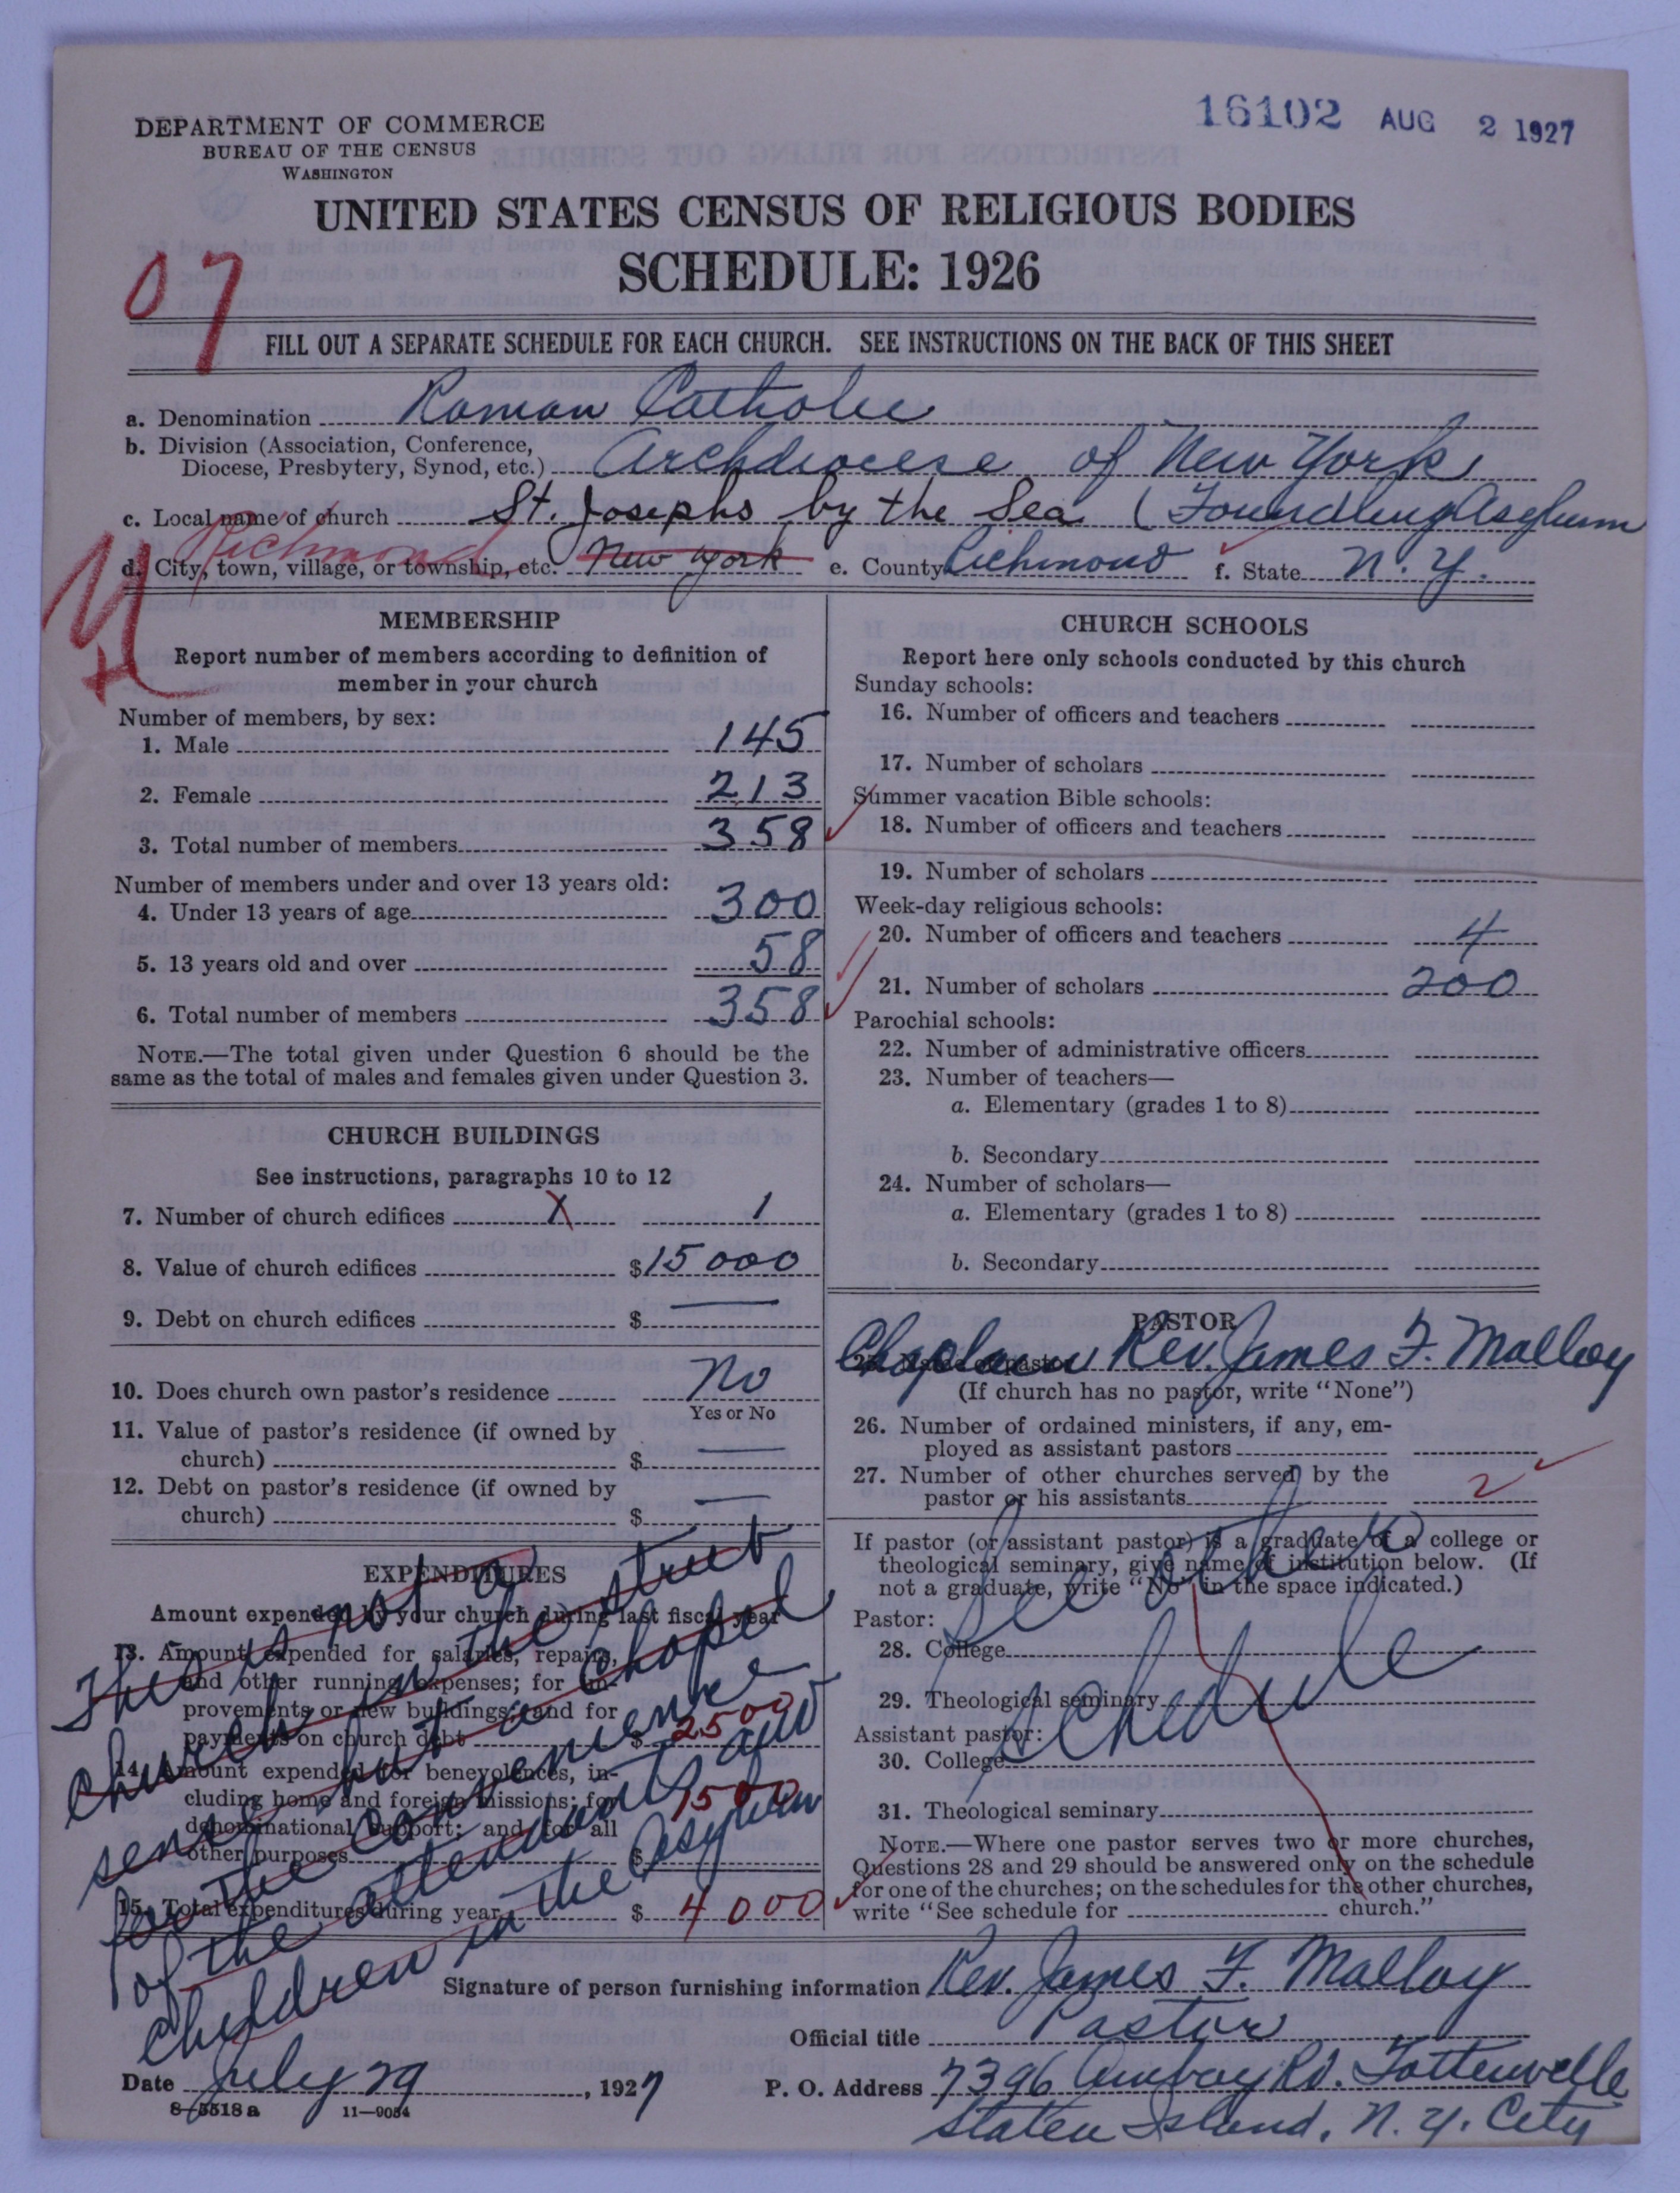 16102 AUG 2 1927
DEPARTMENT OF COMMERCE
BUREAU OF THE CENSUS
WASHINGTON
UNITED STATES CENSUS OF RELIGIOUS BODIES
SCHEDULE: 1926
07
FILL OUT A SEPARATE SCHEDULE FOR EACH CHURCH. SEE INSTRUCTIONS ON THE BACK OF THIS SHEET
a. Denomination Roman Catholic
b. Division (Association, Conference,
Diocese, Presbytery, Synod, etc.) Archdiocese of New York
c. Local name of church St. Josephs by the Sea (Foundling Asylum
Richmond
d. City, town, village, or township, etc. New York e. County Richmond f. State N. Y.
MEMBERSHIP
Report number of members according to definition of
member in your church
Number of members, by sex:
1. Male 145
2. Female 213
3. Total number of members 358
Number of members under and over 13 years old:
4. Under 13 years of age 300
5. 13 years old and over 58
6. Total number of members 358
NOTE.—The total given under Question 6 should be the
same as the total of males and females given under Question 3.
CHURCH BUILDINGS
See instructions, paragraphs 10 to 12
7. Number of church edifices X 1
8. Value of church edifices $15000
9. Debt on church edifices $ —
10. Does church own pastor's residence No
Yes or No
11. Value of pastor's residence (if owned by
church) $ —
12. Debt on pastor's residence (if owned by
church) $ —
EXPENDITURES
Amount expended by your church during last fiscal year
13. Amount expended for salaries, repairs,
and other running expenses; for im-
provements or new buildings; and for
payments on church debt $ 2500
14. Amount expended for benevolences, in-
cluding home and foreign missions; for
denominational support; and for all
other purposes $ 1500
15. Total expenditures during year $ 4000
This is not a
church in the strict
sense, but a chapel
for the convenience
of the attendants and
children in the Asylum
CHURCH SCHOOLS
Report here only schools conducted by this church
Sunday schools:
16. Number of officers and teachers
17. Number of scholars
Summer vacation Bible schools:
18. Number of officers and teachers
19. Number of scholars
Week-day religious schools:
20. Number of officers and teachers 4
21. Number of scholars 200
Parochial schools:
22. Number of administrative officers
23. Number of teachers—
a. Elementary (grades 1 to 8)
b. Secondary
24. Number of scholars—
a. Elementary (grades 1 to 8)
b. Secondary
PASTOR
25. Name of pastor Chaplain Rev. James F. Malloy
(If church has no pastor, write "None")
26. Number of ordained ministers, if any, em-
ployed as assistant pastors
27. Number of other churches served by the
pastor or his assistants 2
If pastor (or assistant pastor) is a graduate of a college or
theological seminary, give name of institution below. (If
not a graduate, write "No" in the space indicated.)
Pastor:
28. College
29. Theological seminary
Assistant pastor:
30. College
31. Theological seminary
See other
schedule
NOTE.—Where one pastor serves two or more churches,
Questions 28 and 29 should be answered only on the schedule
for one of the churches; on the schedules for the other churches,
write "See schedule for church."
Signature of person furnishing information Rev. James F. Malloy
Official title Pastor
Date July 29, 1927 P. O. Address 7396 Amboy Rd. Tottenville
Staten Island, N. Y. City
8—5518 a 11—9034